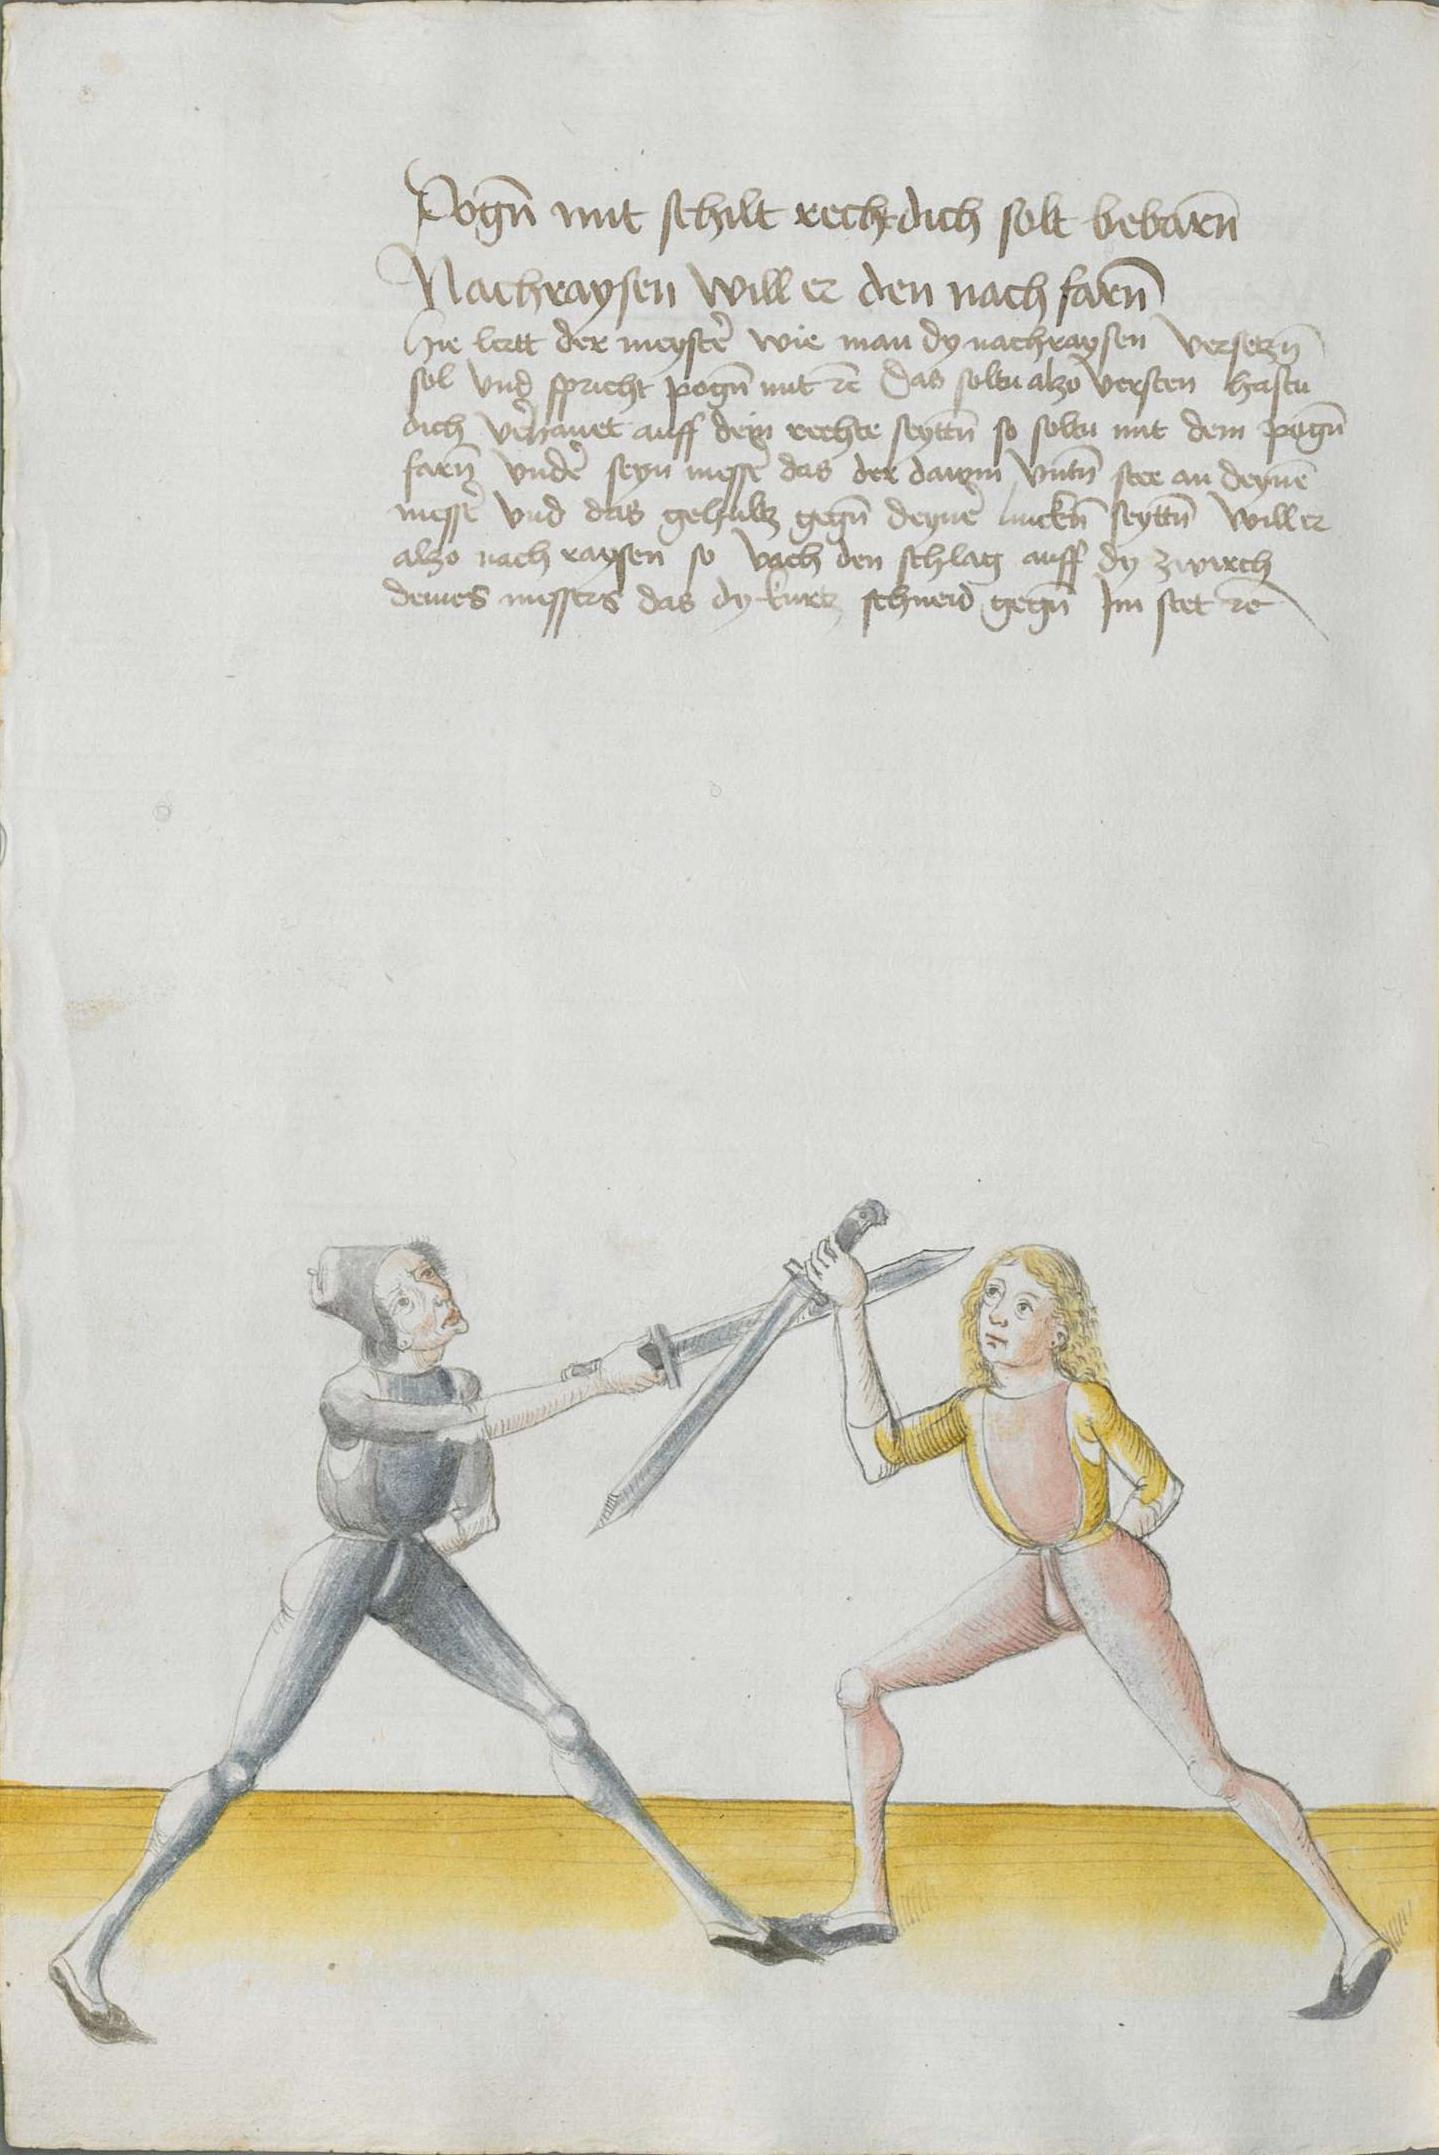 Pogn̄ mit schilt recht dich solt bebarn̄
Nachraysen will er den nach farn̄
Hie lertt der meyster̄ wie man dy nachraysen versetzn̄
sol vnd spricht pogn̄ mit ⁊c̄ Das soltu alzo versten hastu
dich ver̄hauet auff dein rechte seyttn̄ so soltu mit dem pogn̄
farn̄ vnder̄ seyn messer̄ das der dawm vntn̄ stee an deynē
messer̄ vnd das gehultz gegn̄ deyner̄ linckn̄ seyttn̄ will er
alzo nach raysen so vach den schlag auff dy zwirch
deines messers das dy kurtz schneid gegn̄ Im stet ⁊c̄